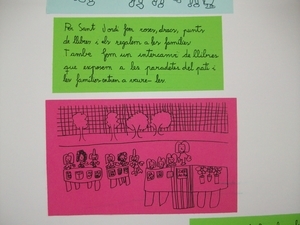 Per Sant Jordi fem roses, dracs, punts
de llibres i els regalem a les famílies
També fem un intercanvi de llibres
que exposem a les paradetes del pati i
les famílies venen a veure-les.